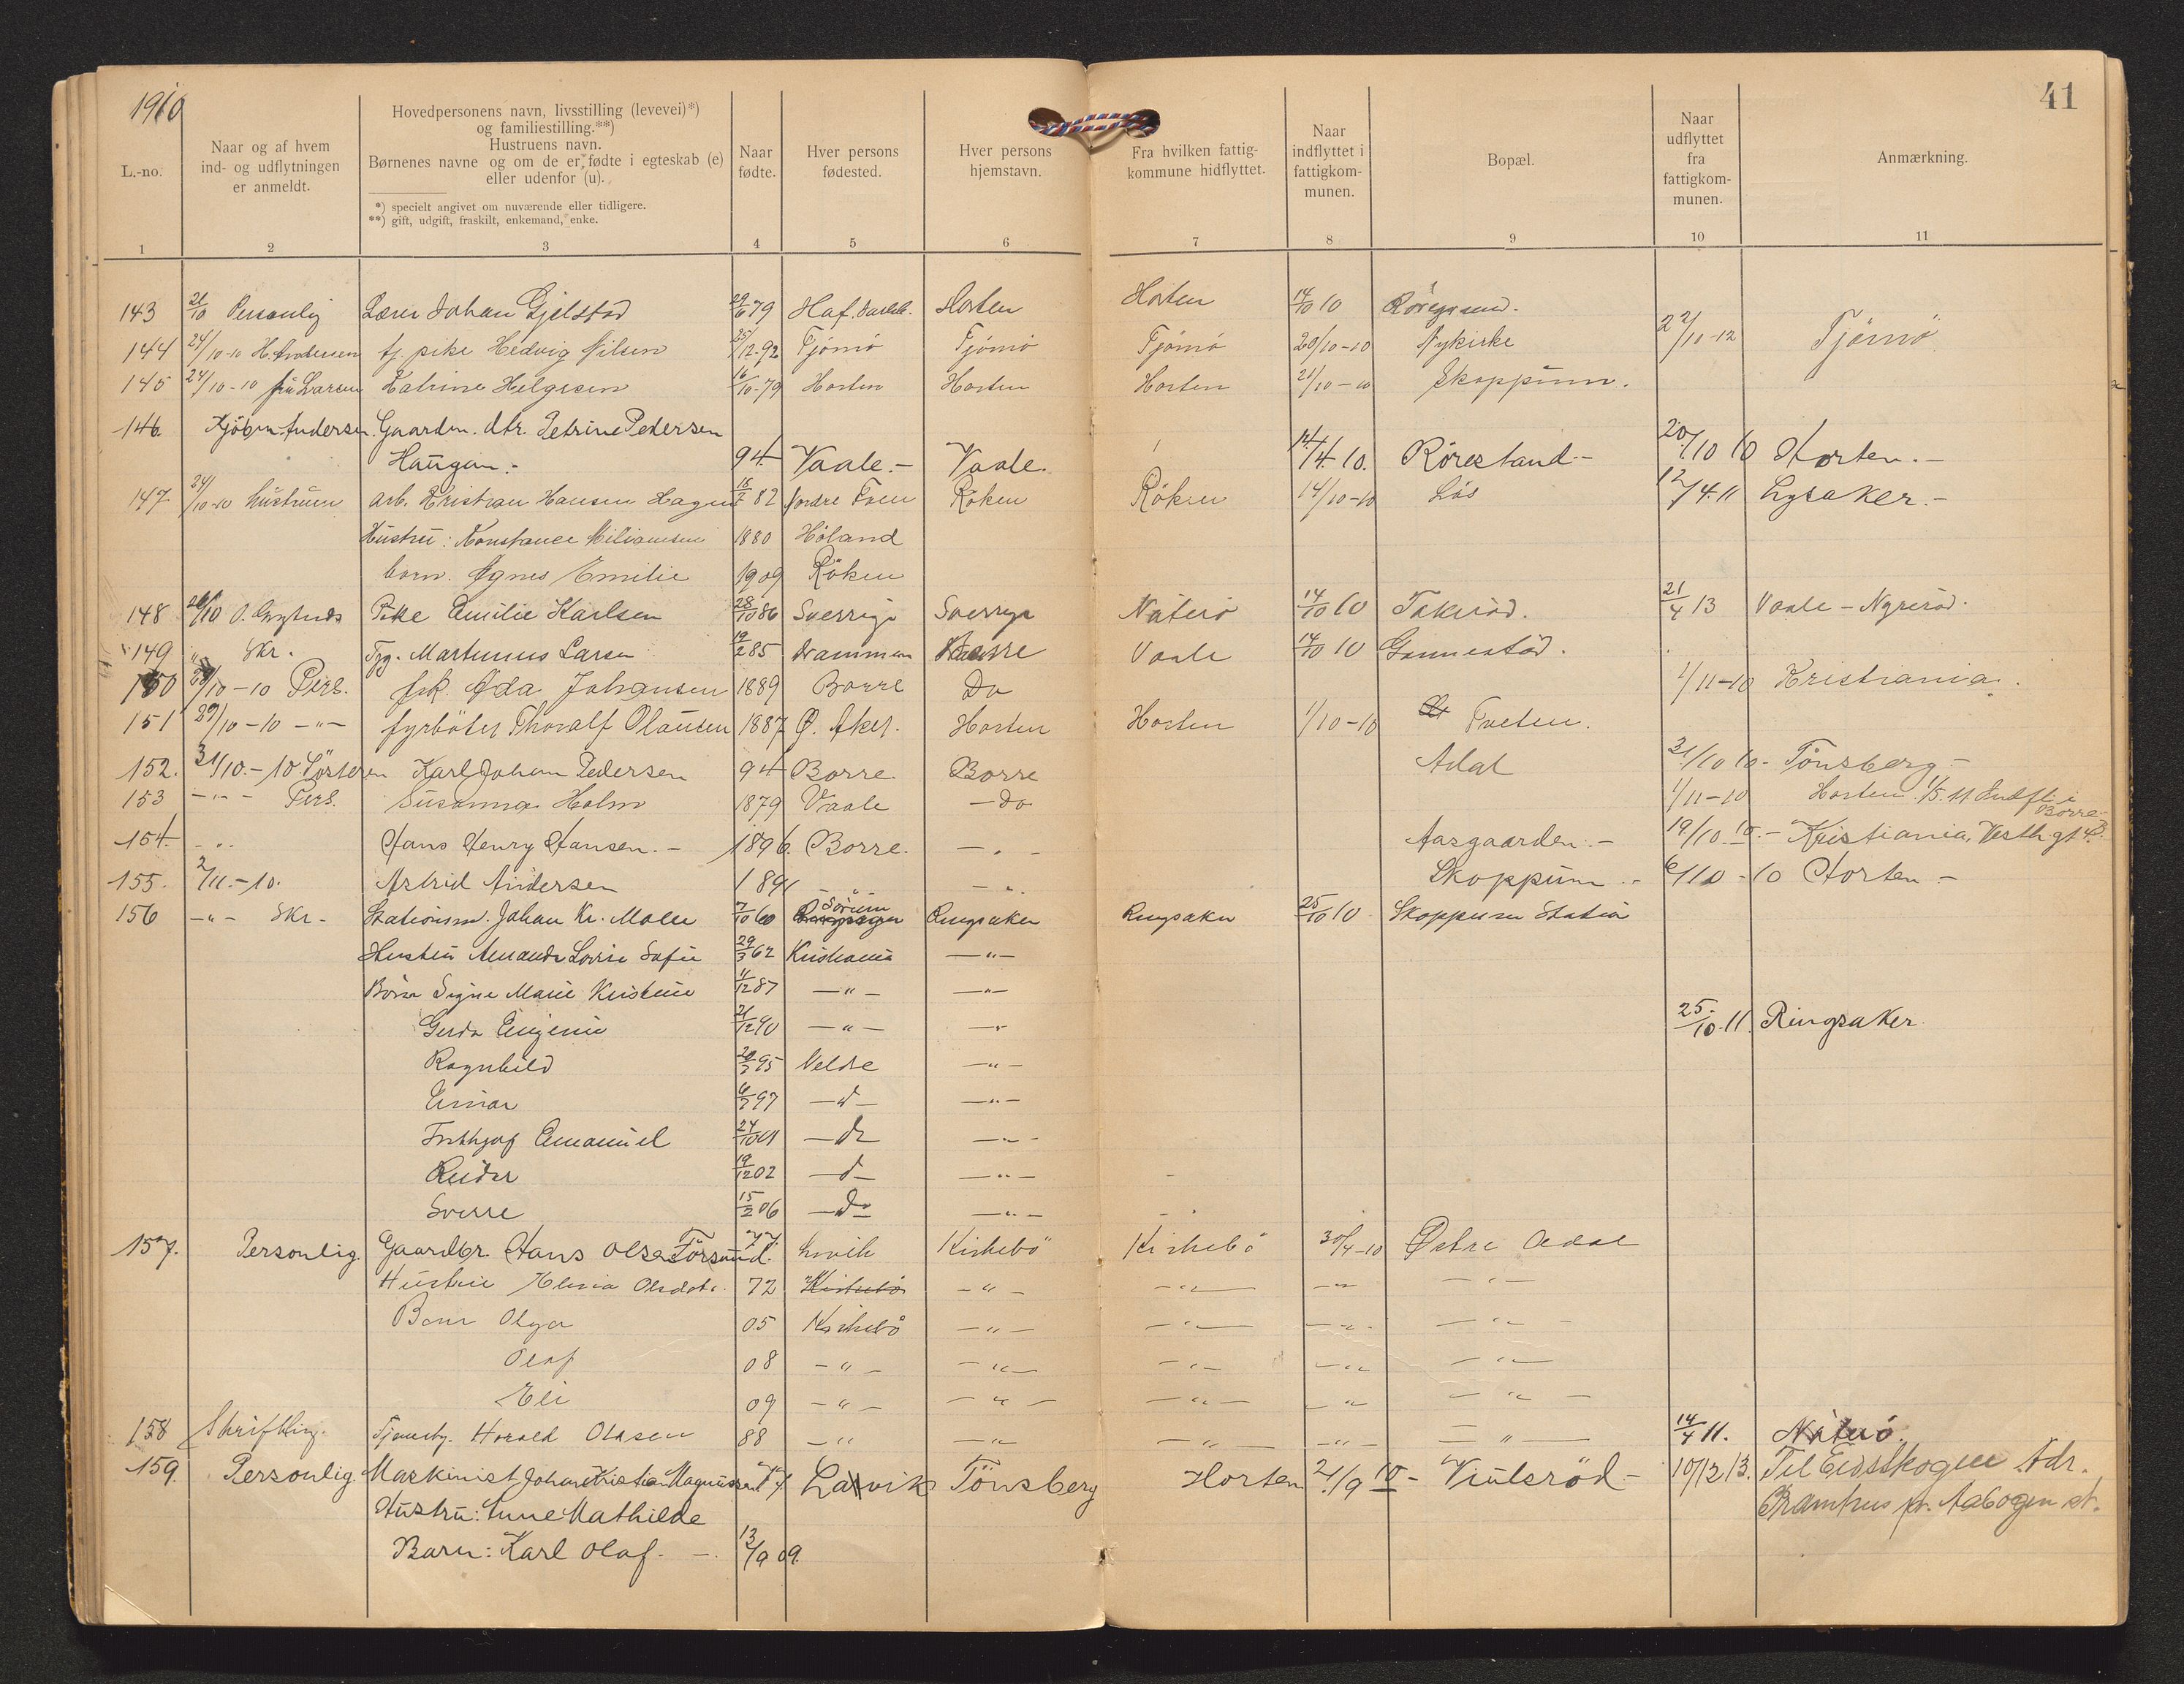 1910
41
L.-no.
Naar og af hvem ind- og udflytningen er anmeldt.
Hovedpersonens navn, livsstilling (levevei)*) og familiestilling.**) Hustruens navn. Børnenes navne og om de er fødte i egteskab (e) eller udenfor (u).
*) specielt angivet om nuværende eller tidligere.
**) gift, udgift, fraskilt, enkemand, enke.
Naar fødte.
Hver persons fødested.
Hver persons hjemstavn.
Fra hvilken fattigkommune hidflyttet.
Naar indflyttet i fattigkommunen.
Bopæl.
Naar udflyttet fra fattigkommunen.
Anmærkning.
1 2 3 4 5 6 7 8 9 10 11
143 21/10 Personlig Lærer Johan Gjelstad 29/6 79 Horten Horten 14/10 10
144 24/10-10 H. Andersen tj. pike Hedvig Nilsen 25/12-92 Tjömö Tjömö Tjömö 20/10-10 Nykirke 22/11-12 Tjömö
145 24/10-10 fru Larsen Katrine Helgesen 16/10-79 Horten Horten Horten 21/10-10 Skoppum.
146. Kjöbm. Andersen. Gaardm. dtr. Petrine Pedersen
Haugan.- 94 Vaale.- Vaale. 14/4 10. Rörestrand- 20/10 10 Horten.-
147 24/10-10 hustruen arb. Kristian Hansen Hagen 82 Röken Röken 14/10-10 Lös 12/4.11 Lysaker.-
Hustru: Konstance 1880 Höland
barn. Agnes Emilie 1909 Röken
148 26/10 Pike Emilie Karlsen 28/10 86 Sverrige Sverrige Nøterö 14/10 10 Takerød. 21/4 13 Vaale - Nyrerød.
149 " Skr. Martinus Larsen 19/2 85 Drammen Vaale 14/10 10 Gannestad.
150 28/10-10 Pers. frk. Ada Johansen 1889 Borre Do 1/11-10 Kristiania.
151 29/10-10 -"- fyrböter Thoralf Olausen 1887 Ø. Aker. Horten Horten 1/10-10 Tveten.
152. 31/10.-10 Karl Johan Pedersen 94 Borre Borre Adal 31/10 10- Tönsberg-
153 -"- Pers. Susanna Holm 1879 Vaale -Do 1/11-10 Horten. 1/5.11 Indfl. i Borre
154. -"- Hans Henry Hansen.- 1896. Borre. -"- Aasgaarden.- 19/10.10.- Kristiania, Vesth.gt
155. 2/11.-10. Astrid Andersen 1891 -"- -"- Skoppum.- Horten-
156 -"- Skr- Stationsm. Johan Kr. Moler 7/10 60 Sörum Ringsaker Ringsaker 25/10 10 Skoppum Station
Hustru Amanda Lovise Sofie 29/3 62 Kristiania -"-
Börn Signe Marie Kristine 11/12 87 -"- -"-
Gerda Eugenie 21/12 90 -"- -"- 25/10.11. Ringsaker
Ragnhild 95 Veldre -"-
Einar 97 -d- -"-
Frithjof Emanuel 24/10 01 -do -"-
Reidar 19/12 02 -d- -"-
Sverre 15/2 06 -Do -"-
157. Personlig. Gaardbr. Hans Olsen Förssund. 77 Lavik Kirkebö Kirkebö 30/4-10 Østre Adal
Hustru Olsdatr. 72 Kirkebö -"- -"- -"- -"-
Barn Olga 05 Kirkebö -"- -"- -"- -"-
Olaf 08 -"- -"- -"- -"- -"-
Eli 09 -"- -"- -"- -"- -"-
158 Skriftlig. Tjenestg. Harald Olasen 88 -"- -"- -"- -"- -"- 14/4 11. Nøterö.
159. Personlig Maskinist Johan Kristian Magnussen 77 Larvik Tönsberg Horten 21/9 10- Viulsröd- 10/12 13. Til Eidsskogen Adr.
Bramhus pr. Aabogen st.
Hustru: Anne Mathilde
Barn: Karl Olaf. -. 13/9 09.